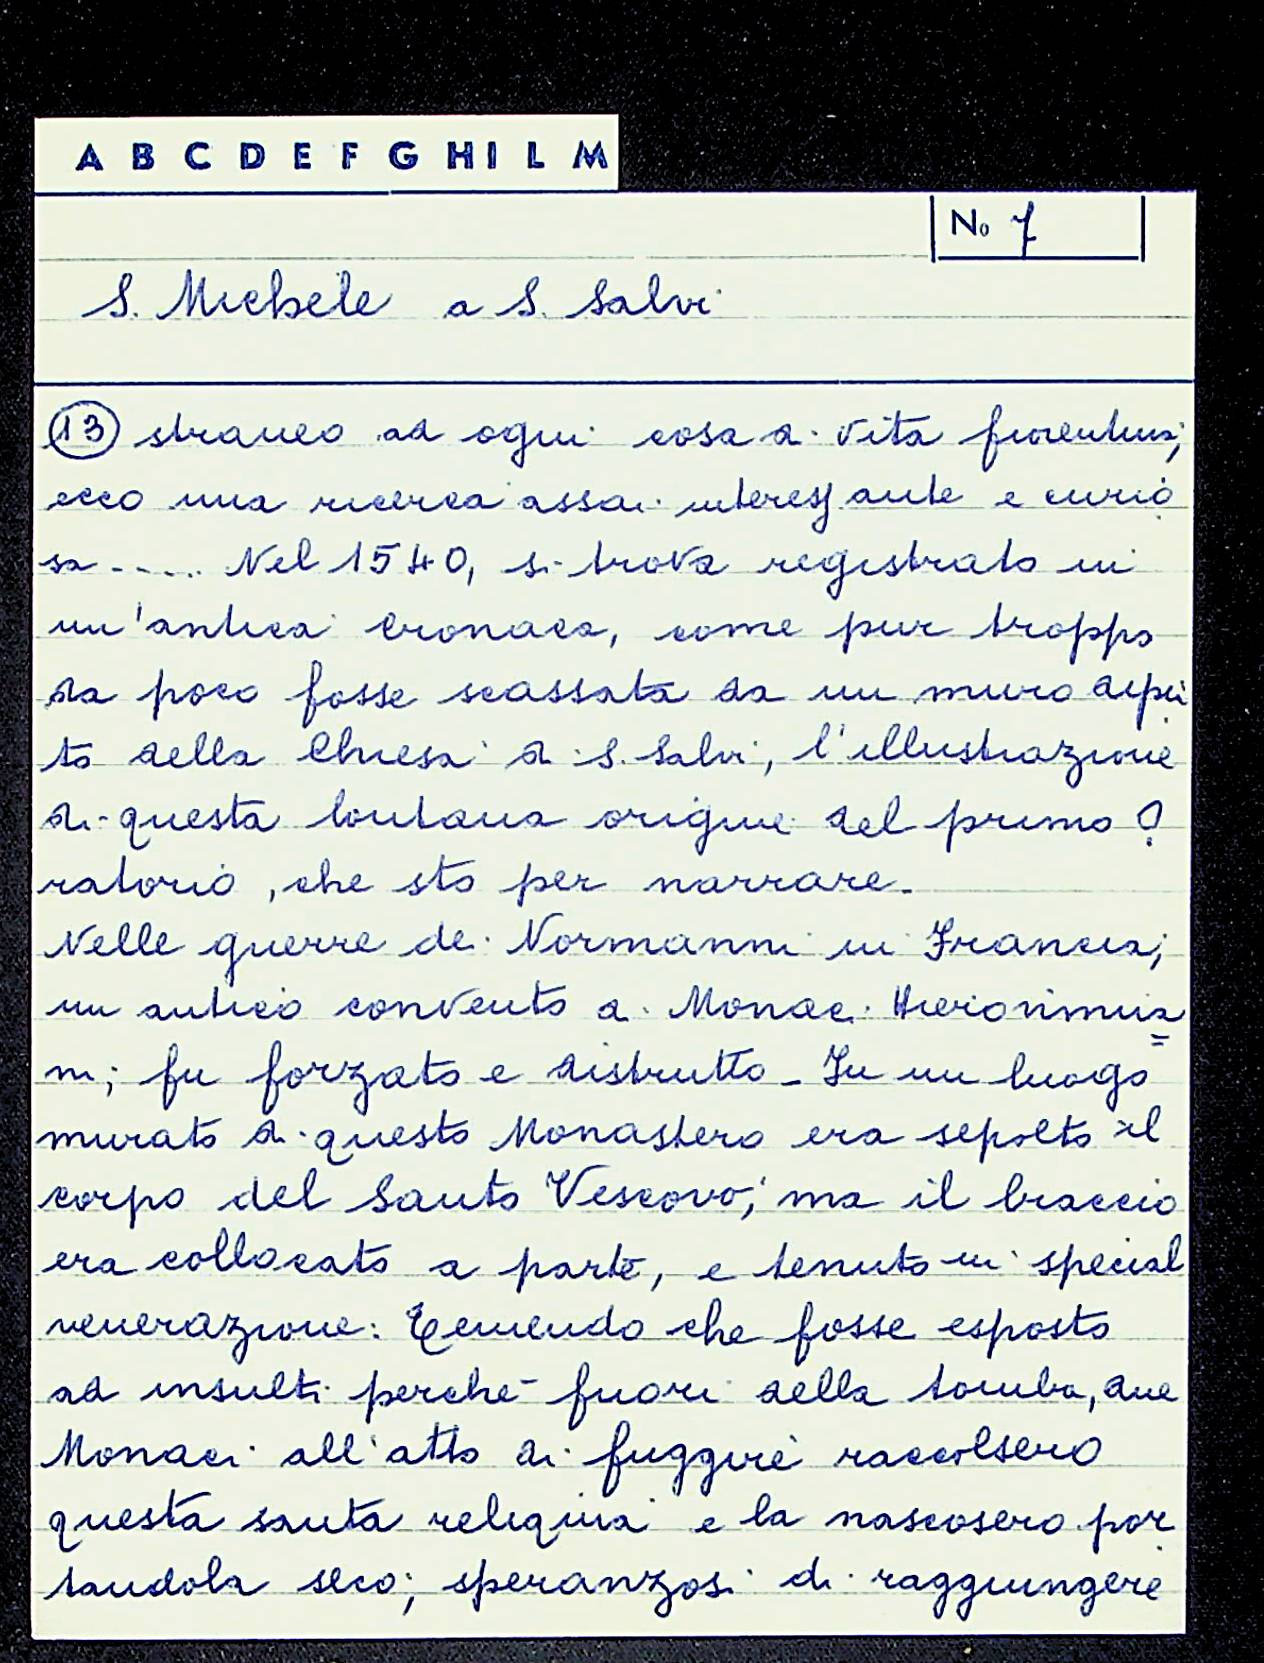 A B C D E F G H I L M
No 7
S. Michele a S. Salvi
13 straneo ad ogni cosa di vita fiorentina;
ecco una ricerca assai interessante e curio
sa ..... Nel 1540, si trova registrato in
un'antica Cronaca, come pur troppo
da poco fosse scassata da un muro dipin
to della Chiesa di S. Salvi, l'illustrazione
di questa lontana origine del primo O
ratorio, che sto per narrare.
Nelle guerre dei Normanni in Francia;
un antico convento di Monaci Hieronimia
=
ni; fu forzato e distrutto - In un luogo
murato di questo Monastero era sepolto il
corpo del Santo Vescovo; ma il braccio
era collocato a parte, e tenuto in special
venerazione: Temendo che fosse esposto
ad insulti perchè fuori della tomba, due
Monaci all'atto di fuggire raccolsero
questa santa reliquia e la nascosero por
tandola seco; speranzosi di raggiungere